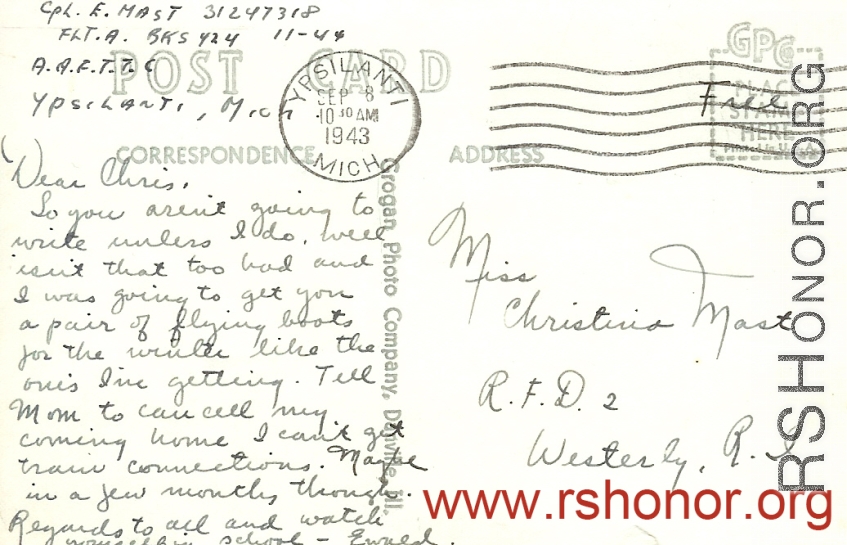 Cpl. E. MAST 31247318
FLT. A. BKS 424 11-44
A.A.F.T.T.C
YPSILANTI, Mich
POST CARD
YPSILANTI
SEP 8
10 30 AM
1943
MICH.
GPC
PLACE
STAMP
HERE
Free
CORRESPONDENCE
ADDRESS
Dear Chris,
So you aren't going to
write unless I do. well
isn't that too bad and
I was going to get you
a pair of flying boots
for the winter like the
ones I'm getting. Tell
Mom to cancell my
coming home I can't get
train connections. Maybe
in a few months though.
Regards to all and watch
yourself in school - Ewald.
Grogan Photo Company, Danville, Ill.
Miss
Christina Mast
R.F.D. 2
Westerly, R. I
RSHONOR.ORG
www.rshonor.org